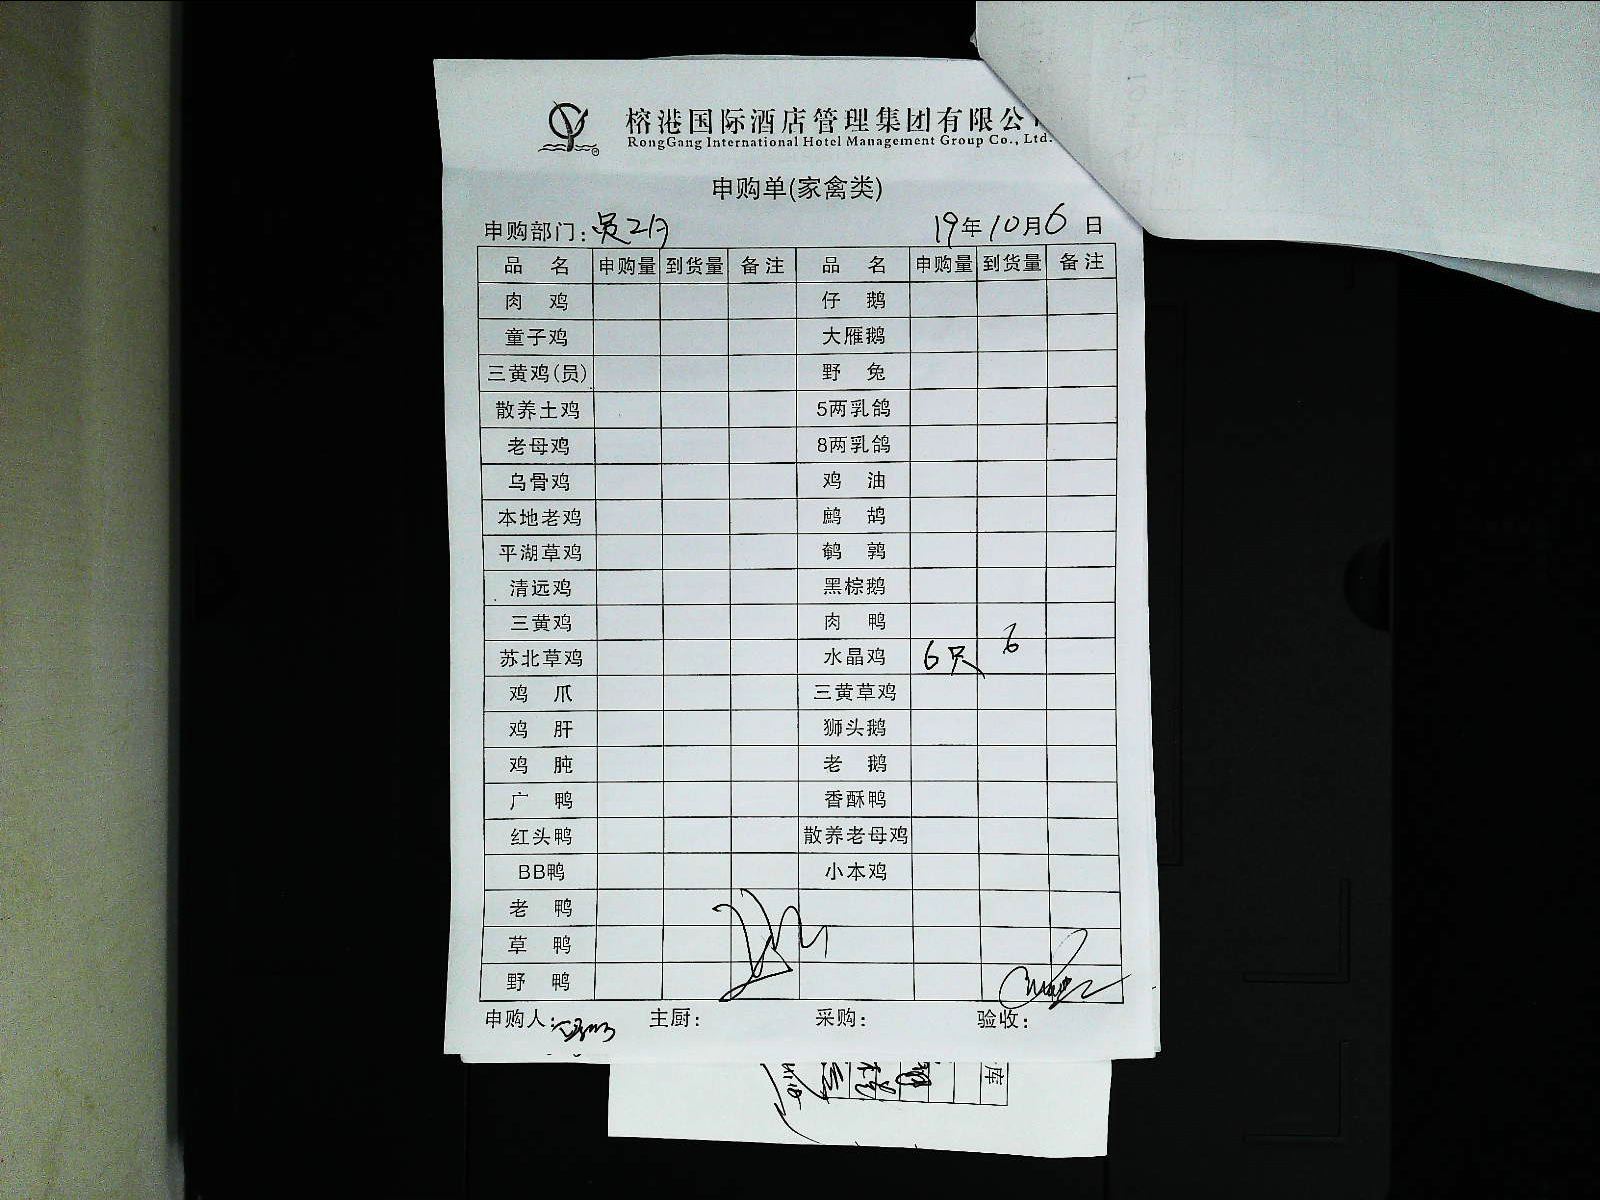 榕港国际酒店管理集团有限公
RongGang International Hotel Management Group Co., Ltd.
申购单(家禽类)
申购部门: 19年10月6日
品名 申购量 到货量 备注 品名 申购量 到货量 备注
肉鸡 仔鹅
童子鸡 大雁鹅
三黄鸡(员) 野兔
散养土鸡 5两乳鸽
老母鸡 8两乳鸽
乌骨鸡 鸡油
本地老鸡 鹧鸪
平湖草鸡 鹌鹑
清远鸡 黑棕鹅
三黄鸡 肉鸭
苏北草鸡 水晶鸡 6只 6
鸡爪 三黄草鸡
鸡肝 狮头鹅
鸡肫 老鹅
广鸭 香酥鸭
红头鸭 散养老母鸡
BB鸭 小本鸡
老鸭
草鸭
野鸭
申购人: 主厨: 采购: 验收:
库